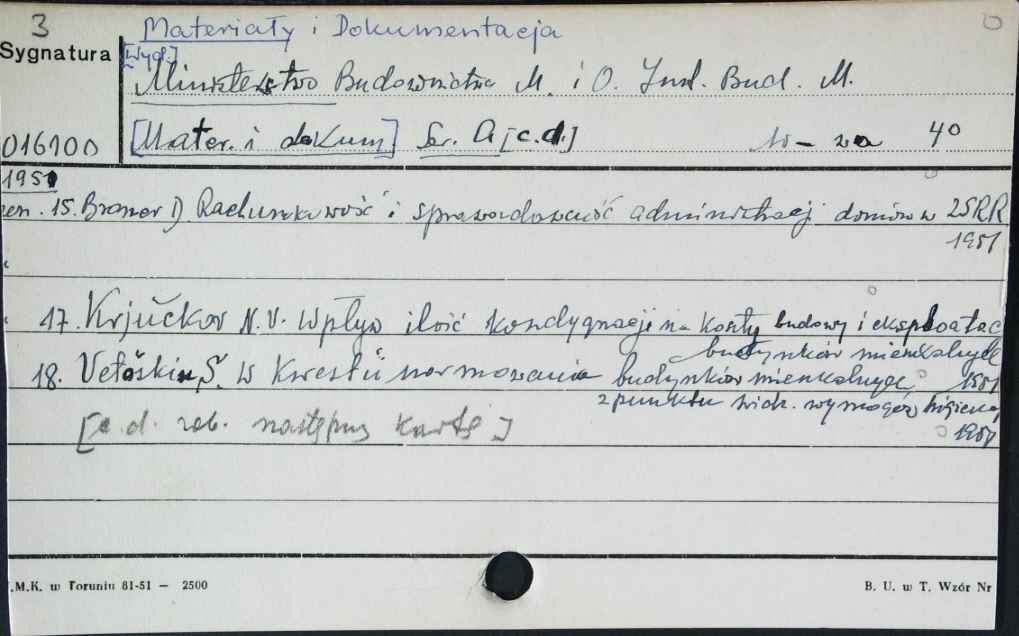 3 Materiały i Dokumentacja
Sygnatura [Wyd.]
Ministerstwo Budownictwa M. i O. Inst. Bud. M.
016100 [Mater. i dokum] Ser. A [c.d.] W-wa 4°
1951
15. Broner I). Rachunkowość i sprawozdawczość administracji domów w ZSRR
1951
17. Krjučkov N.V. Wpływ ilość kondygnacji na koszty budowy i eksploatac
budynków mieszkalnych
18. Vetoškin, S. W kwestii normowania budynków mieszkalnych 1951
z punktu widz. wymogów higieny
[c.d. zob. następną kartę] 1951
.M.K. w Toruniu 81-51 — 2500 B. U. w T. Wzór Nr